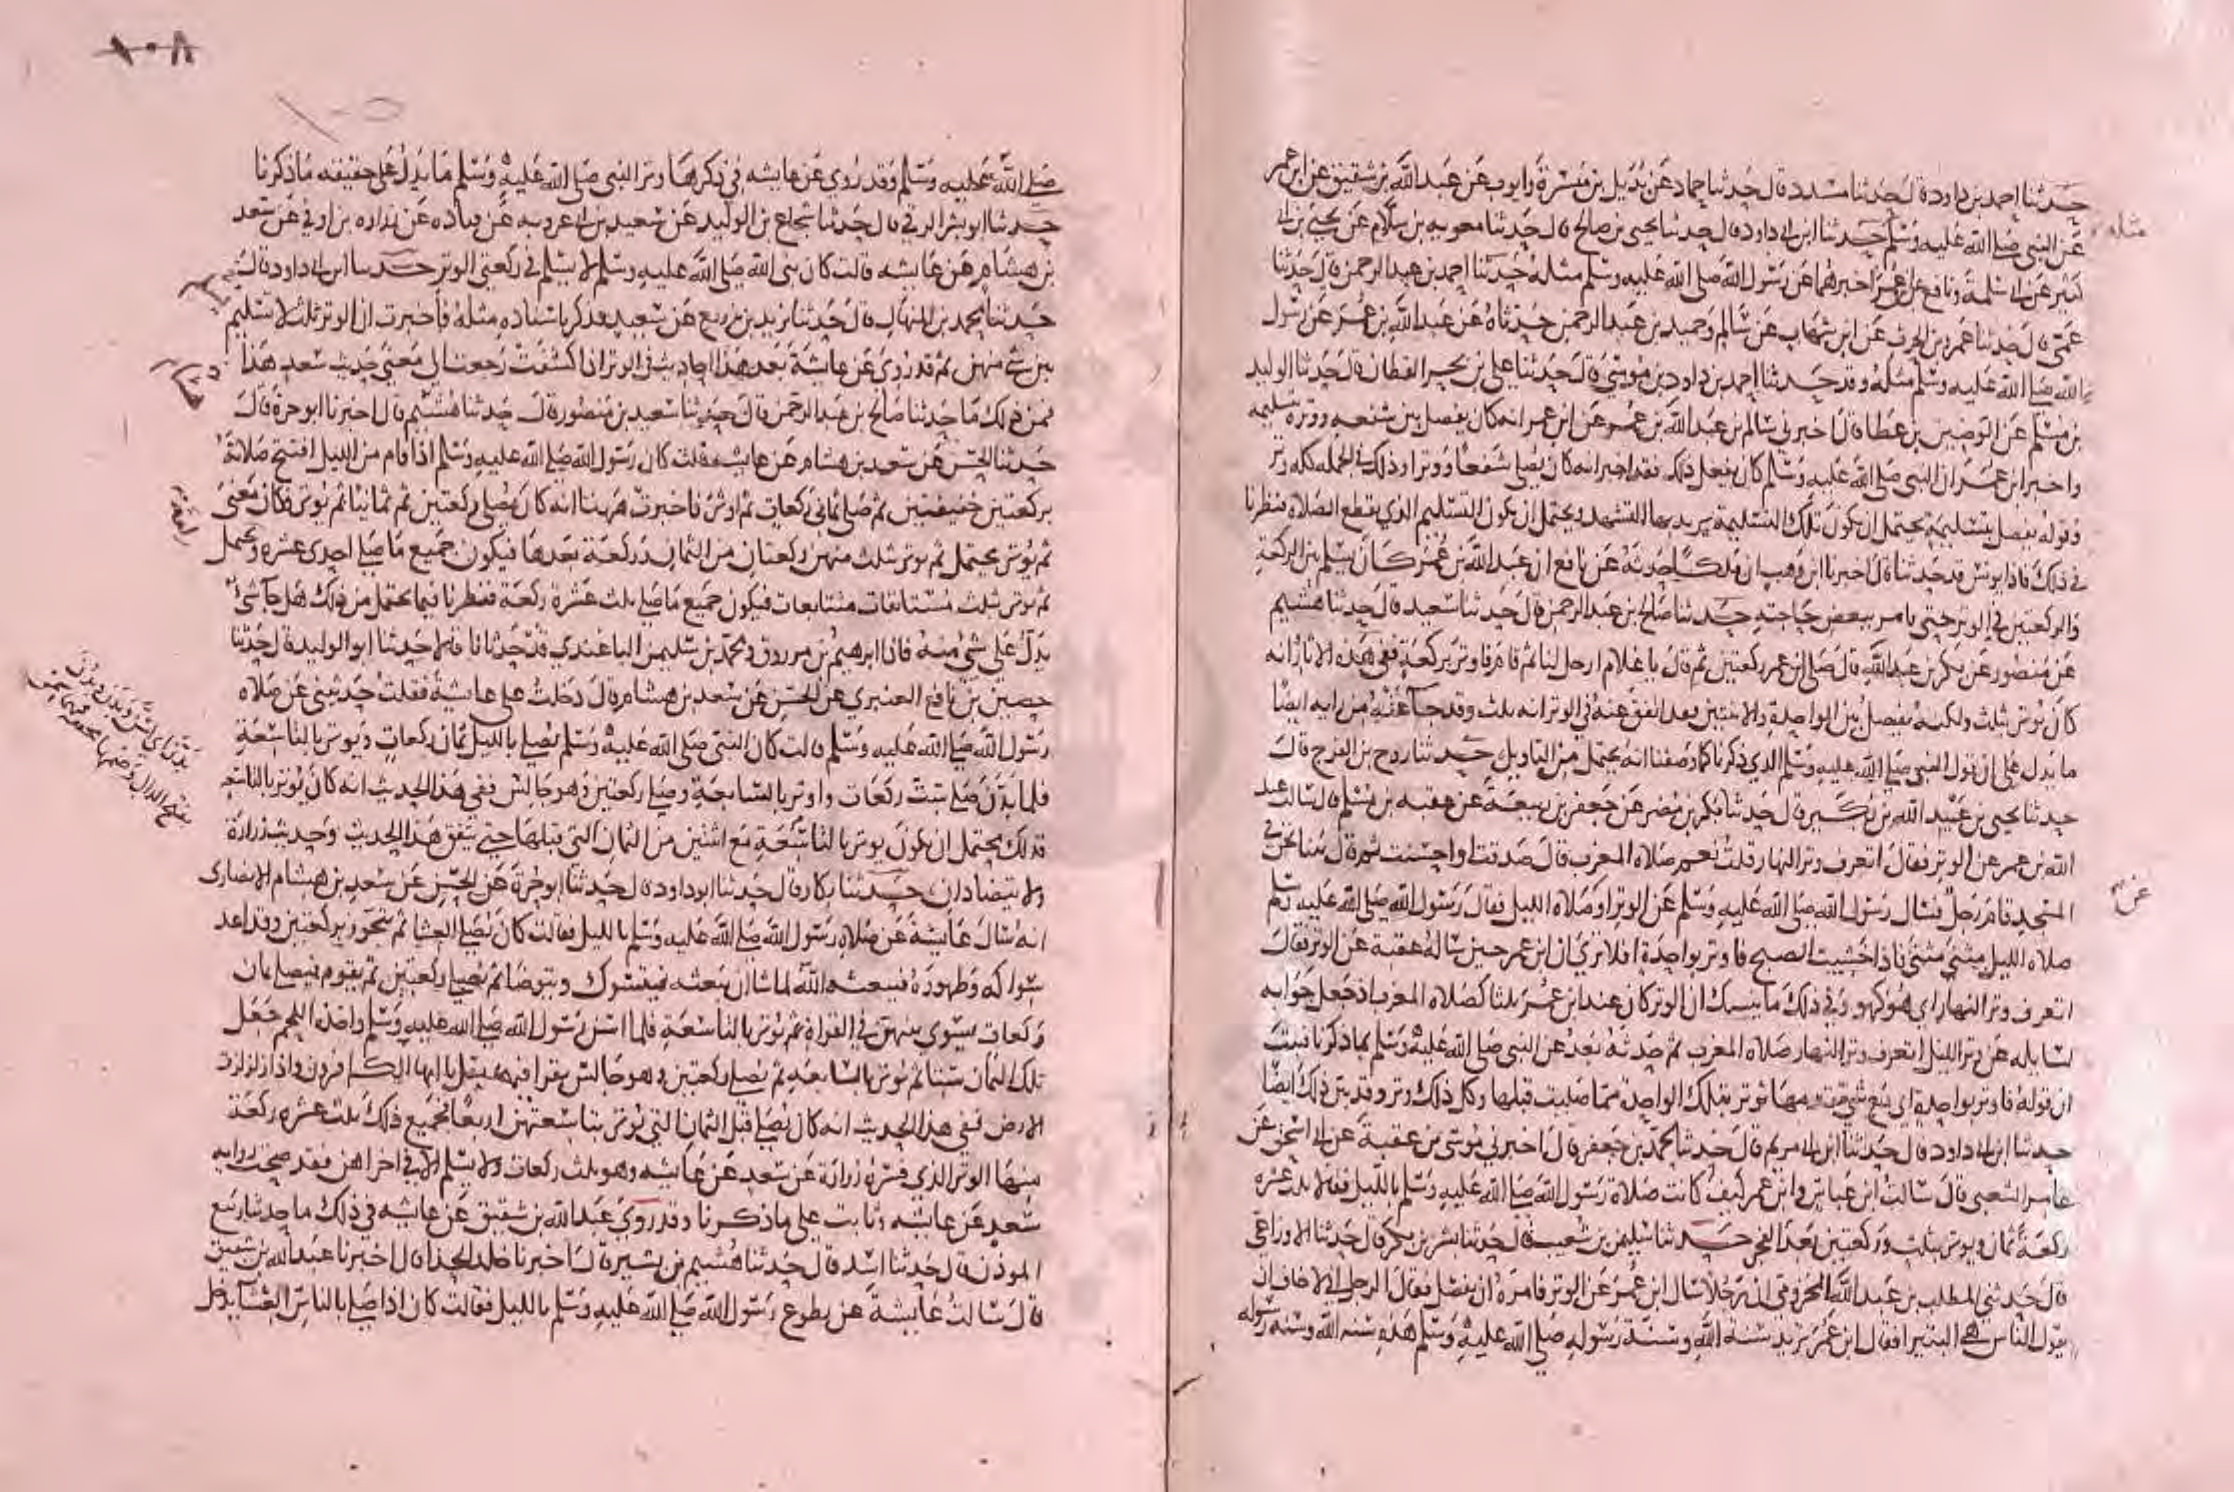 حدثنا احمد بن داود قال حدثنا مسدد قال حدثنا حماد عن بديل بن ميسرة وايوب عن عبد الله بن شقيق عن ابن عمر
عن النبي صلى الله عليه وسلم حدثنا ابن ابي داود قال حدثنا يحيى بن صالح قال حدثنا معويه بن سلام عن يحيى بن ابي
كثير عن ابي سلمة ونافع عن ابن عمر اخبرهما عن رسول الله صلى الله عليه وسلم مثله حدثنا احمد بن عبد الرحمن قال حدثنا
عمي قال حدثنا عمرو بن الحرث عن ابن شهاب عن سالم وحميد بن عبد الرحمن حدثاه عن عبد الله بن عمر عن رسول
الله صلى الله عليه وسلم مثله وقد حدثنا احمد بن داود بن موسى قال حدثنا علي بن بحير القطان قال حدثنا الوليد
بن مسلم عن الوضين بن عطا قال اخبرني سالم بن عبد الله بن عمر عن ابن عمر انه كان يفصل بين شفعه ووتره بتسليمه
واخبر ابن عمر ان النبي صلى الله عليه وسلم كان يفعل ذلك فقد اخبر انه كان يصلي شفعا ووترا وذلك في الجمله كله وتر
وقوله يفصل بتسليمة يحتمل ان يكون تلك التسليمة يريد بها التشهد ويحتمل ان يكون التسليم الذي يقطع الصلاة فنظرنا
في ذلك فاذا يونس قد حدثنا قال اخبرنا ابن وهب ان ملكا حدثه عن نافع ان عبد الله بن عمر كان يسلم بين الركعة
والركعتين في الوتر حتى يامر ببعض حاجته حدثنا صالح بن عبد الرحمن قال حدثنا سعيد قال حدثنا هشيم
عن منصور عن بكر بن عبد الله قال صلى ابن عمر ركعتين ثم قال يا غلام ارحل لنا ثم قام فاوتر بركعة ففي هذه الاثار انه
كان يوتر بثلث ولكنه يفصل بين الواحدة والاثنتين فقد اتفق عنه في الوتر انه ثلث وقد جا عنه من رايه ايضا
ما يدل على ان قول النبي صلى الله عليه وسلم الذي ذكرنا كما وصفنا انه يحتمل من التاويل حدثنا روح بن الفرج قال
حدثنا يحيى بن عبيد الله بن بكير قال حدثنا بكر بن مضر عن جعفر بن ربيعة عن عقبه بن مسلم قال سالت عبد
الله بن عمر عن الوتر فقال اتعرف وتر النهار قلت نعم صلاه المغرب قال صدقت او احسنت ثم قال بينا نحن في
المسجد قام رجل فسال رسول الله صلى الله عليه وسلم عن الوتر او صلاه الليل فقال رسول الله صلى الله عليه وسلم
صلاه الليل مثنى مثنى فاذا خشيت الصبح فاوتر بواحدة افلا ترى ان ابن عمر حين ساله عقبة عن الوتر فقال
اتعرف وتر النهار اي هو كهو وفي ذلك ما ينبيك ان الوتر كان عند ابن عمر ثلثا كصلاه المغرب اذ جعل جوابه
لسايله عن وتر الليل اتعرف وتر النهار صلاه المغرب ثم حدثه بعد عن النبي صلى الله عليه وسلم بما ذكرنا فثبت
ان قوله فاوتر بواحدة اي مع شي تقدمها توتر بتلك الواحدة مما صليت قبلها وكل ذلك وتر وقد بين ذلك ايضا
حدثنا ابن ابي داود قال حدثنا ابن ابي مريم قال حدثنا محمد بن جعفر قال اخبرني موسى بن عقبة عن ابي اسحق عن
عامر الشعبي قال سالت ابن عباس وابن عمر كيف كانت صلاه رسول الله صلى الله عليه وسلم بالليل فقالا ثلث عشره
ركعة ثمان ويوتر بثلث وركعتين بعد الفجر حدثنا سليمن بن شعيب قال حدثنا بشر بن بكر قال حدثنا الاوزاعي
قال حدثني المطلب بن عبد الله المخزومي ان رجلا سال ابن عمر عن الوتر فامره ان يفصل فقال الرجل اني لاخاف ان
يقول الناس هي البتيرا فقال ابن عمر تريد سنة الله وسنة رسوله صلى الله عليه وسلم هذه سنه الله وسنه رسوله
مثله
عن
صلى الله عليه وسلم وقد روي عن عايشه في ذكرها وتر النبي صلى الله عليه وسلم ما يدل على حقيقه ما ذكرنا
حدثنا ابو بشر الرقي قال حدثنا شجاع بن الوليد عن سعيد بن ابي عروبه عن قتاده عن زراره بن اوفى عن سعد
بن هشام عن عايشه قالت كان نبي الله صلى الله عليه وسلم لا يسلم في ركعتي الوتر حدثنا ابن ابي داود قال
حدثنا محمد بن المنهال قال حدثنا يزيد بن زريع عن سعيد فذكر باسناده مثله فاخبرت ان الوتر ثلث لا تسليم
بين شي منهن ثم قد روي عن عايشة بعد هذا احاديث في الوتر اذا كشفت رجعت الى معنى حديث سعد هذا
فمن ذلك ما حدثنا صالح بن عبد الرحمن قال حدثنا سعيد بن منصور قال حدثنا هشيم قال اخبرنا ابو حرة قال
حدثنا الحسن عن سعد بن هشام عن عايشه قالت كان رسول الله صلى الله عليه وسلم اذا قام من الليل افتتح صلاته
بركعتين خفيفتين ثم صلى ثماني ركعات ثم اوتر فاخبرت ههنا انه كان يصلي ركعتين ثم ثمانيا ثم يوتر فكان معنى
ثم يوتر يحتمل ثم يوتر بثلث منهن ركعتان من الثمان وركعة بعدها فيكون جميع ما صلى احدى عشره ويحتمل
ثم يوتر بثلث مستانفات متتابعات فيكون جميع ما صلى ثلث عشرة ركعة فنظرنا فيما يحتمل من ذلك هل جا شي
يدل على شي منه فاذا ابرهيم بن مرزوق ومحمد بن سليمن الباغندي قد حدثانا قالا حدثنا ابو الوليد قال حدثنا
حصين بن نافع العنبري عن الحسن عن سعد بن هشام قال دخلت على عايشة فقلت حدثيني عن صلاه
رسول الله صلى الله عليه وسلم قالت كان النبي صلى الله عليه وسلم يصلي بالليل ثمان ركعات ويوتر بالتاسعة
فلما بدن صلى ست ركعات واوتر بالسابعة وصلى ركعتين وهو جالس ففي هذا الحديث انه كان يوتر بالتاسعه
فذلك يحتمل ان يكون يوتر بالتاسعة مع اثنتين من الثمان التي قبلها حتى يتفق هذا الحديث وحديث زرارة
ولا يتضادان حدثنا بكار قال حدثنا ابو داود قال حدثنا ابو حرة عن الحسن عن سعد بن هشام الانصاري
انه سال عايشة عن صلاه رسول الله صلى الله عليه وسلم بالليل فقالت كان يصلي العشا ثم يتجوز بركعتين وقد اعد
سواكه وطهوره فيبعثه الله لما شا ان يبعثه فيتسوك ويتوضا ثم يصلي ركعتين ثم يقوم فيصلي ثمان
ركعات يسوي بينهن في القراة ثم يوتر بالتاسعة فلما اسن رسول الله صلى الله عليه وسلم واخذه اللحم جعل
تلك الثمان ستا ثم يوتر بالسابعة ثم يصلي ركعتين وهو جالس يقرا فيهما بقل يا ايها الكافرون واذا زلزلت
الارض ففي هذا الحديث انه كان يصلي قبل الثمان التي يوتر بتاسعتهن اربعا فجميع ذلك ثلث عشره ركعة
منها الوتر الذي فسره زرارة عن سعد عن عايشه وهو ثلث ركعات ولا يسلم الا في اخراهن فقد صحت روايه
سعد عن عايشه وثابت على ما ذكرنا وقد روى عبد الله بن شقيق عن عايشه في ذلك ما حدثنا ربيع
الموذن قال حدثنا اسد قال حدثنا هشيم بن بشير قال اخبرنا خلد الحذا قال اخبرنا عبد الله بن شقيق
قال سالت عايشة عن تطوع رسول الله صلى الله عليه وسلم بالليل فقالت كان اذا صلى بالناس العشا يدخل
١٠٨